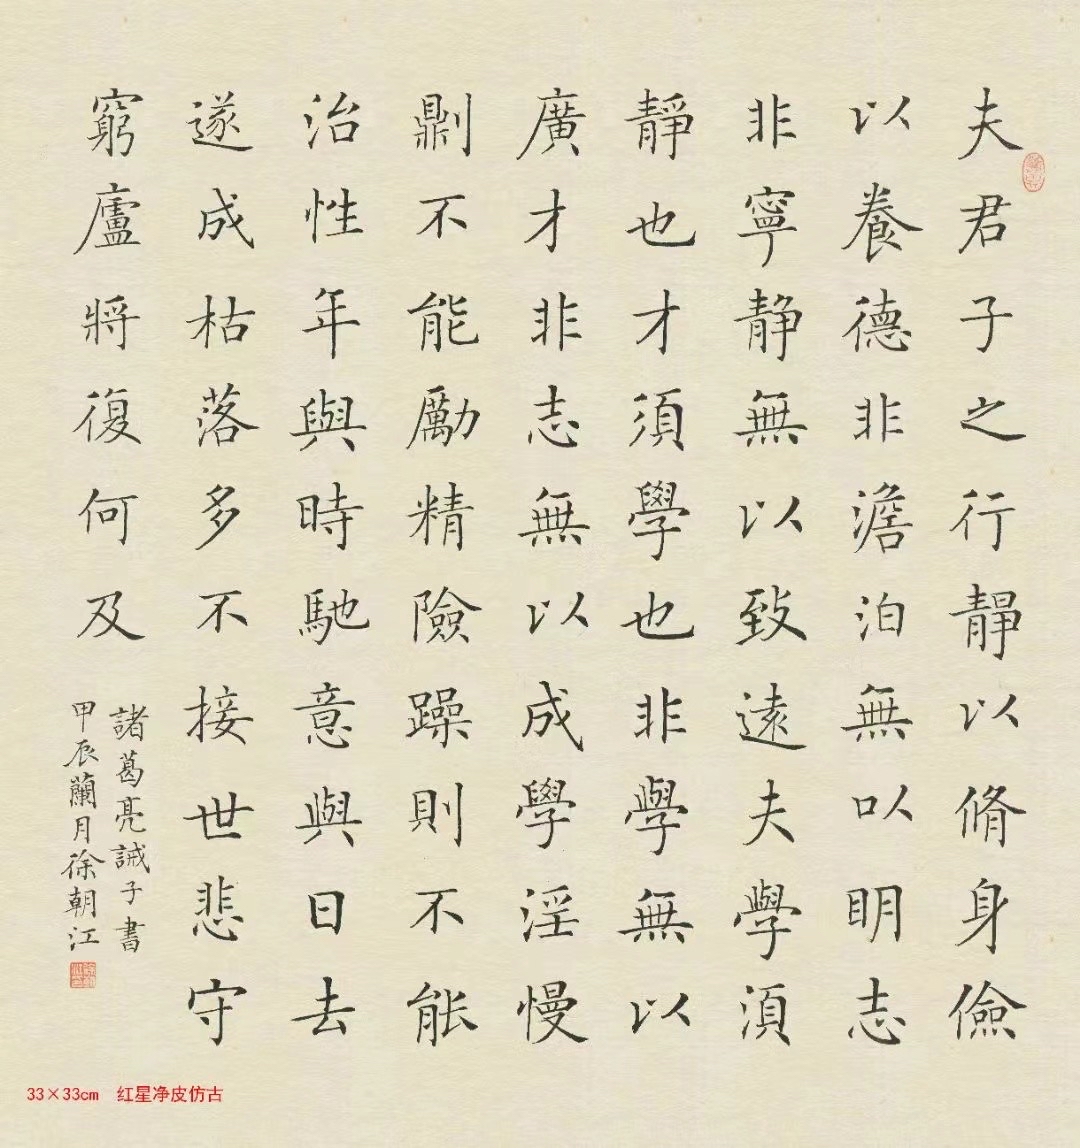 夫君子之行靜以脩身儉
以養德非澹泊無以明志
非寧靜無以致遠夫學須
靜也才須學也非學無以
廣才非志無以成學淫慢
則不能勵精險躁則不能
治性年與時馳意與日去
遂成枯落多不接世悲守
窮廬將復何及
諸葛亮誡子書
甲辰蘭月徐朝江
33×33cm 红星净皮仿古